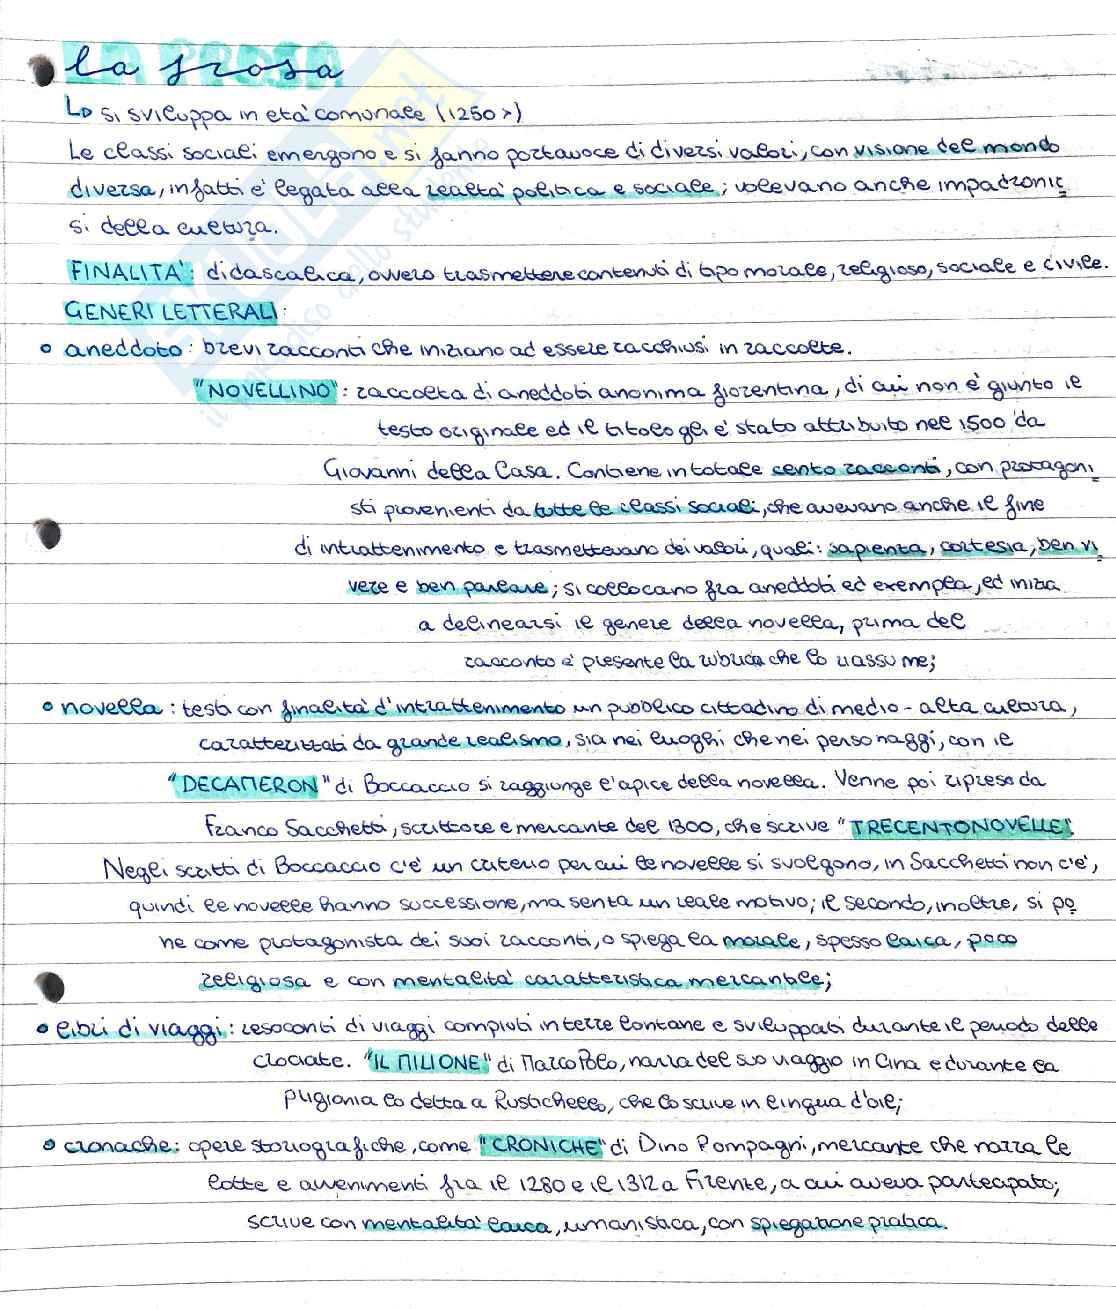 la prosa
↳ si sviluppa in età comunale (1250 >)
Le classi sociali emergono e si fanno portavoce di diversi valori, con visione del mondo
diversa, infatti è legata alla realtà politica e sociale; volevano anche impadronir
si della cultura.
FINALITÀ: didascalica, ovvero trasmettere contenuti di tipo morale, religioso, sociale e civile.
GENERI LETTERALI:
• aneddoto: brevi racconti che iniziano ad essere racchiusi in raccolte.
"NOVELLINO": raccolta di aneddoti anonima fiorentina, di cui non è giunto il
testo originale ed il titolo gli è stato attribuito nel 1500 da
Giovanni della Casa. Contiene in totale cento racconti, con protagoni
sti provenienti da tutte le classi sociali, che avevano anche il fine
di intrattenimento e trasmettevano dei valori, quali: sapienza, cortesia, ben vi
vere e ben parlare; si collocano fra aneddoti ed exempla, ed inizia
a delinearsi il genere della novella, prima del
racconto è presente la rubrica che lo riassume;
• novella: testi con finalità d'intrattenimento un pubblico cittadino di medio-alta cultura,
caratterizzati da grande realismo, sia nei luoghi che nei personaggi, con il
"DECAMERON" di Boccaccio si raggiunge l'apice della novella. Venne poi ripresa da
Franco Sacchetti, scrittore e mercante del 1300, che scrive "TRECENTONOVELLE".
Negli scritti di Boccaccio c'è un criterio per cui le novelle si svolgono, in Sacchetti non c'è,
quindi le novelle hanno successione, ma senza un reale motivo; il secondo, inoltre, si po
ne come protagonista dei suoi racconti, o spiega la morale, spesso laica, poco
religiosa e con mentalità caratteristica mercantile;
• libri di viaggi: resoconti di viaggi compiuti in terre lontane e sviluppati durante il periodo delle
crociate. "IL MILIONE" di Marco Polo, narra del suo viaggio in Cina e durante la
prigionia lo detta a Rustichello, che lo scrive in lingua d'oil;
• cronache: opere storiografiche, come "CRONICHE" di Dino Pompagni, mercante che narra le
lotte e avvenimenti fra il 1280 e il 1312 a Firenze, a cui aveva partecipato;
scrive con mentalità laica, umanistica, con spiegazione pratica.